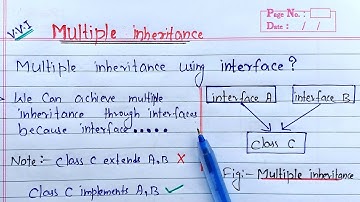 V.V.I
Page No.:
Date: / /
Multiple inheritance
Multiple inheritance using interface?
We Can achieve multiple
inheritance through interfaces
because interface.....
Note :- Class C extends A,B ✗
Class C implements A,B ✓
interface A
interface B
Class C
Fig:- Multiple inheritance